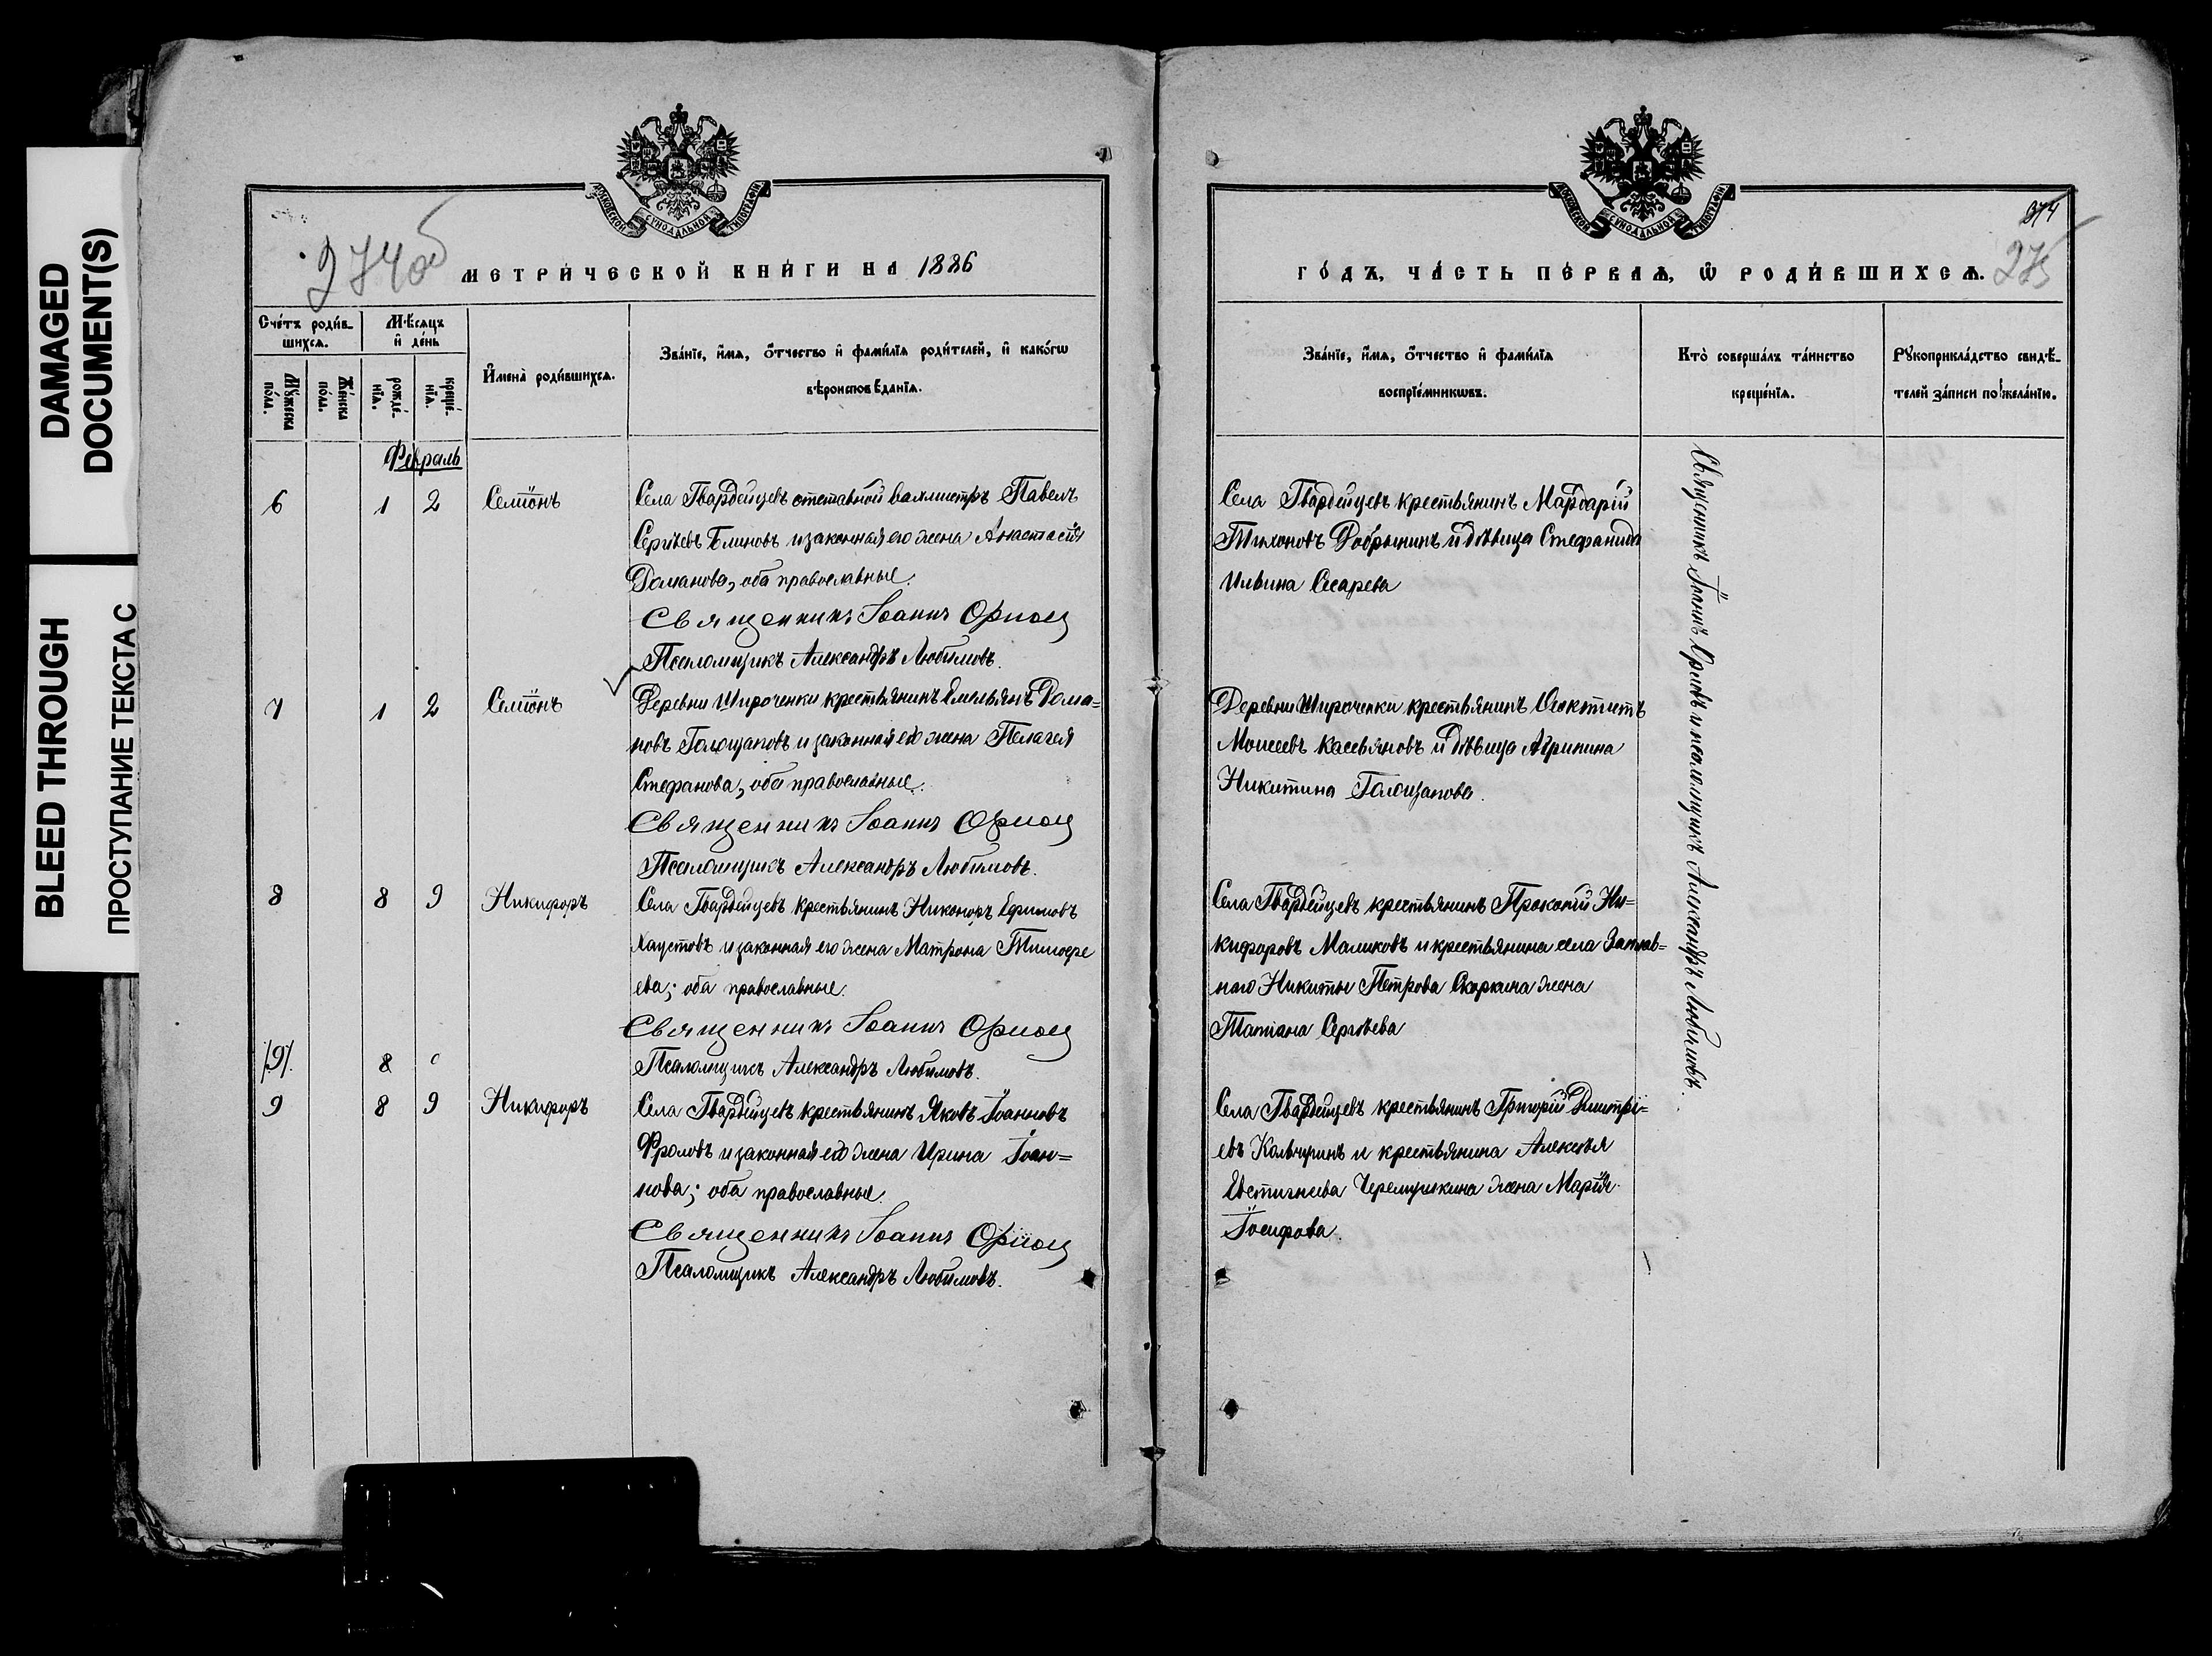 DAMAGED
DOCUMENT(S)
BLEED THROUGH
ПРОСТУПАНИЕ ТЕКСТА С
МОСКОВСКОЙ СУНОДАЛЬНОЙ ТИПОГРАФІИ
274об
МЕТРИ́ЧЕСКОЙ КНИ́ГИ НА 1886
Сче́тъ роди́в-
шихсѧ.
Мѣ́сѧцъ
и҆ де́нь
Му́жеска
по́ла.
Же́нска
по́ла.
рожде́-
нїѧ.
креще́-
нїѧ.
И҆мена̀ роди́вшихсѧ.
Зва́нїе, и҆́мѧ, ѻ҆́тчество и҆ фами́лїѧ роди́телей, и҆ како́гѡ
вѣроисповѣданїѧ.
Февраль
6 1 2 Семіонъ
Села Гвардейцевъ отставной вахмистръ Павелъ
Сергѣевъ Блиновъ и законная его жена Анастасія
Романова, оба православные.
Священникъ Іоаннъ Орлов
Псаломщикъ Александръ Любимовъ.
7 1 2 Семіонъ
Деревни Широченки крестьянинъ Емельянъ Рома=
новъ Голощаповъ и законная его жена Пелагея
Стефанова, оба православные.
Священникъ Іоаннъ Орлов
Псаломщикъ Александръ Любимовъ.
8 8 9 Никифоръ
Села Гвардейцевъ крестьянинъ Никоноръ Ефимовъ
Хаустовъ и законная его жена Матрона Тимофе
ева; оба православные.
Священникъ Іоаннъ Орлов
/9/. 8
Псаломщикъ Александръ Любимовъ.
9 8 9 Никифоръ
Села Гвардейцевъ крестьянинъ Яковъ Іоанновъ
Фроловъ и законная его жена Ирина Іоан=
нова; оба православные.
Священникъ Іоаннъ Орлов
Псаломщикъ Александръ Любимовъ.
МОСКОВСКОЙ СУНОДАЛЬНОЙ ТИПОГРАФІИ
374
275
ГО́ДЪ, ЧА́СТЬ ПЕ́РВАѦ, Ѡ҆ РОДИ́ВШИХСѦ.
Зва́нїе, и҆́мѧ, ѻ҆́тчество и҆ фами́лїѧ
воспрїе́мникѡвъ.
Кто̀ соверша́лъ та́инство
креще́нїѧ.
Рꙋкоприкла́дство свидѣ́-
телей за́писи по жела́нїю.
Села Гвардейцевъ крестьянинъ Мардарій
Тихоновъ Добрынинъ и дѣвица Стефанида
Ильина Слесарева
Деревни Широченки крестьянинъ
Моисеевъ Касьяновъ и дѣвица Агрипина
Никитина Голощапова.
Села Гвардейцевъ крестьянинъ Прокопій Ни=
кифоровъ Маликовъ и крестьянина села Заплав=
наго Никиты Петрова Скоркина жена
Татіана Сергѣева
Села Гвардейцевъ крестьянинъ Григорій Димитрі=
евъ Кольчугинъ и крестьянина Алексѣя
Евстигнеева Черемушкина жена Марія
Іосифова.
Священникъ Іоаннъ Орловъ и псаломщикъ Александръ Любимовъ.